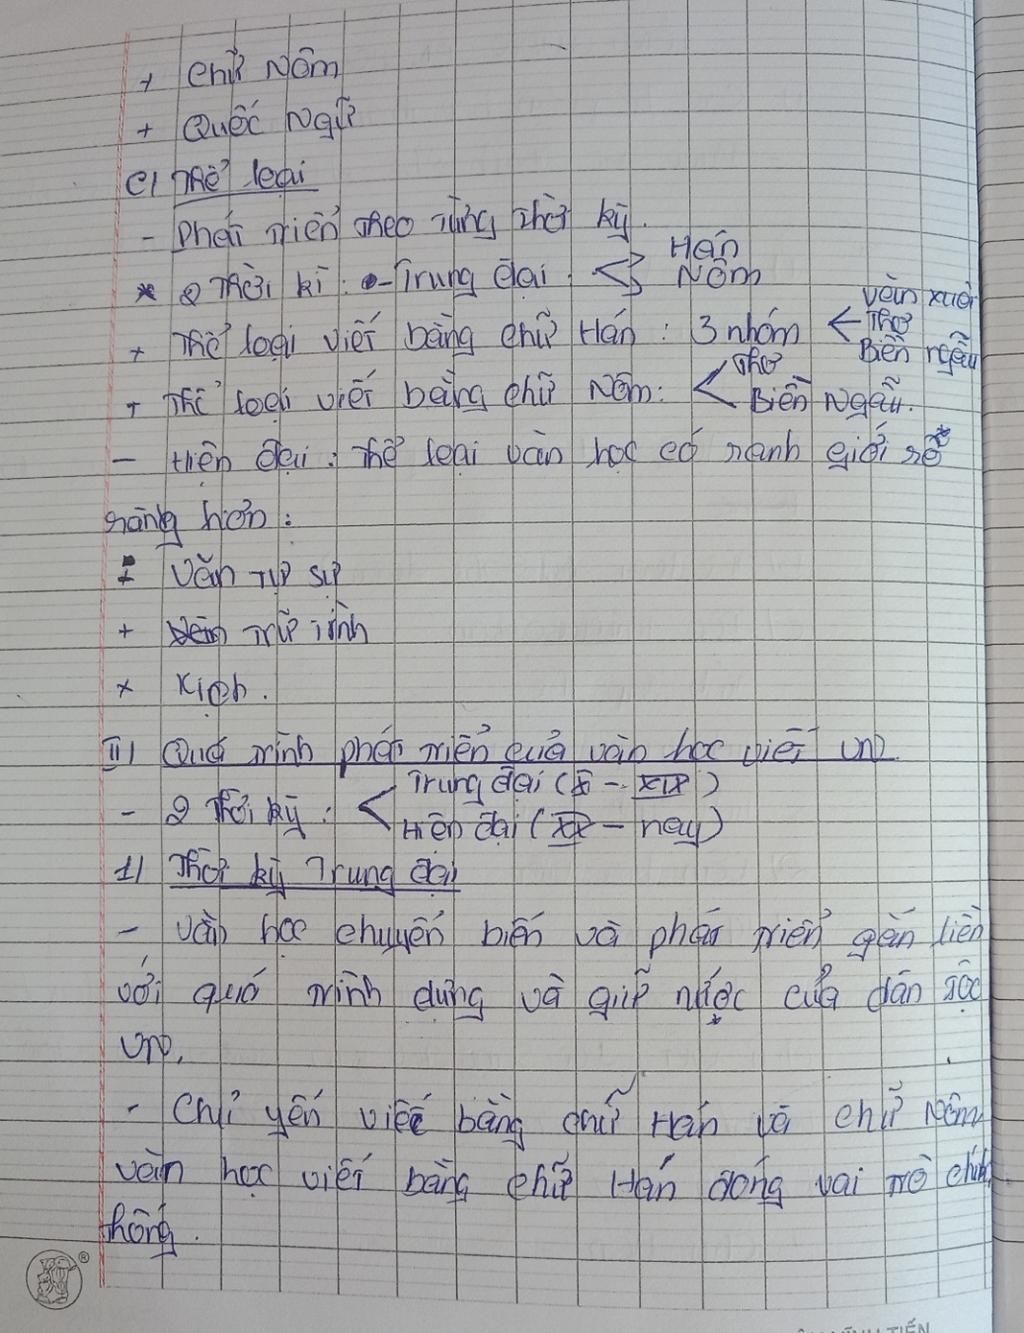 + Chữ Nôm
+ Quốc Ngữ
c) Thể loại
- Phát triển theo từng thời kỳ.
* 2 Thời kì: - Trung đại: < Hán
Nôm
+ Thể loại viết bằng chữ Hán: 3 nhóm < văn xuôi
Thơ
Biền ngẫu
+ Thể loại viết bằng chữ Nôm: < Thơ
Biền Ngẫu.
- Hiện đại: Thể loại văn học có ranh giới rõ
ràng hơn:
+ Văn tự sự
+ trữ tình
+ Kịch.
II) Quá trình phát triển của văn học viết VN
- 2 Thời kỳ: < Trung đại (X - XIX)
Hiện đại (XX - nay)
1) Thời kỳ Trung đại
- Văn học chuyển biến và phát triển gắn liền
với quá trình dựng và giữ nước của dân tộc
VN.
- Chủ yếu viết bằng chữ Hán và chữ Nôm
văn học viết bằng chữ Hán đóng vai trò chính
thống.
VĨNH TIẾN